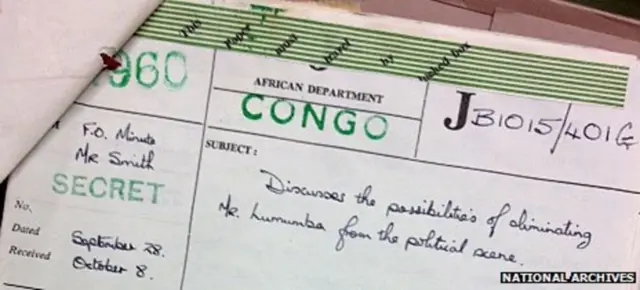 This Paper must travel by locked box
1960
AFRICAN DEPARTMENT
CONGO
JB1015/401G
F.O. Minute
Mr Smith
SECRET
No.
Dated September 28.
Received October 8.
SUBJECT:
Discusses the possibilities of eliminating
Mr. Lumumba from the political scene.
NATIONAL ARCHIVES